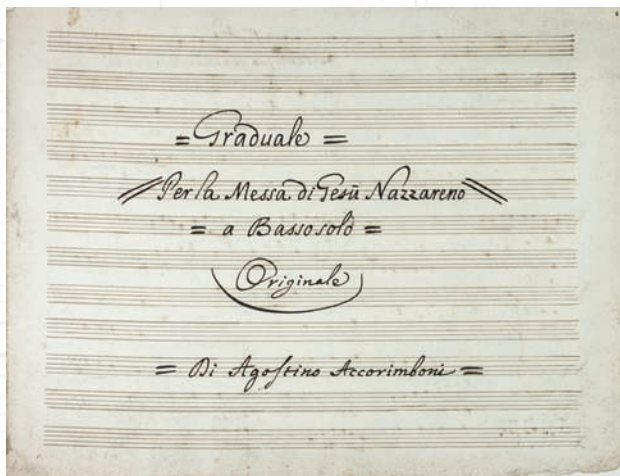 = Graduale =
Per la Messa di Gesù Nazzareno
= a Basso solo =
Originale
= Di Agostino Accorimboni =